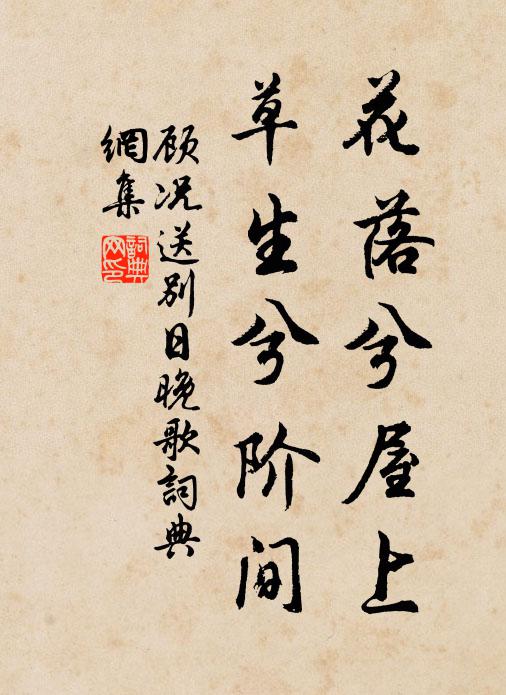 花落兮屋上
草生兮阶间
顾况送别日晚歌詞典
網集
詞典
网印